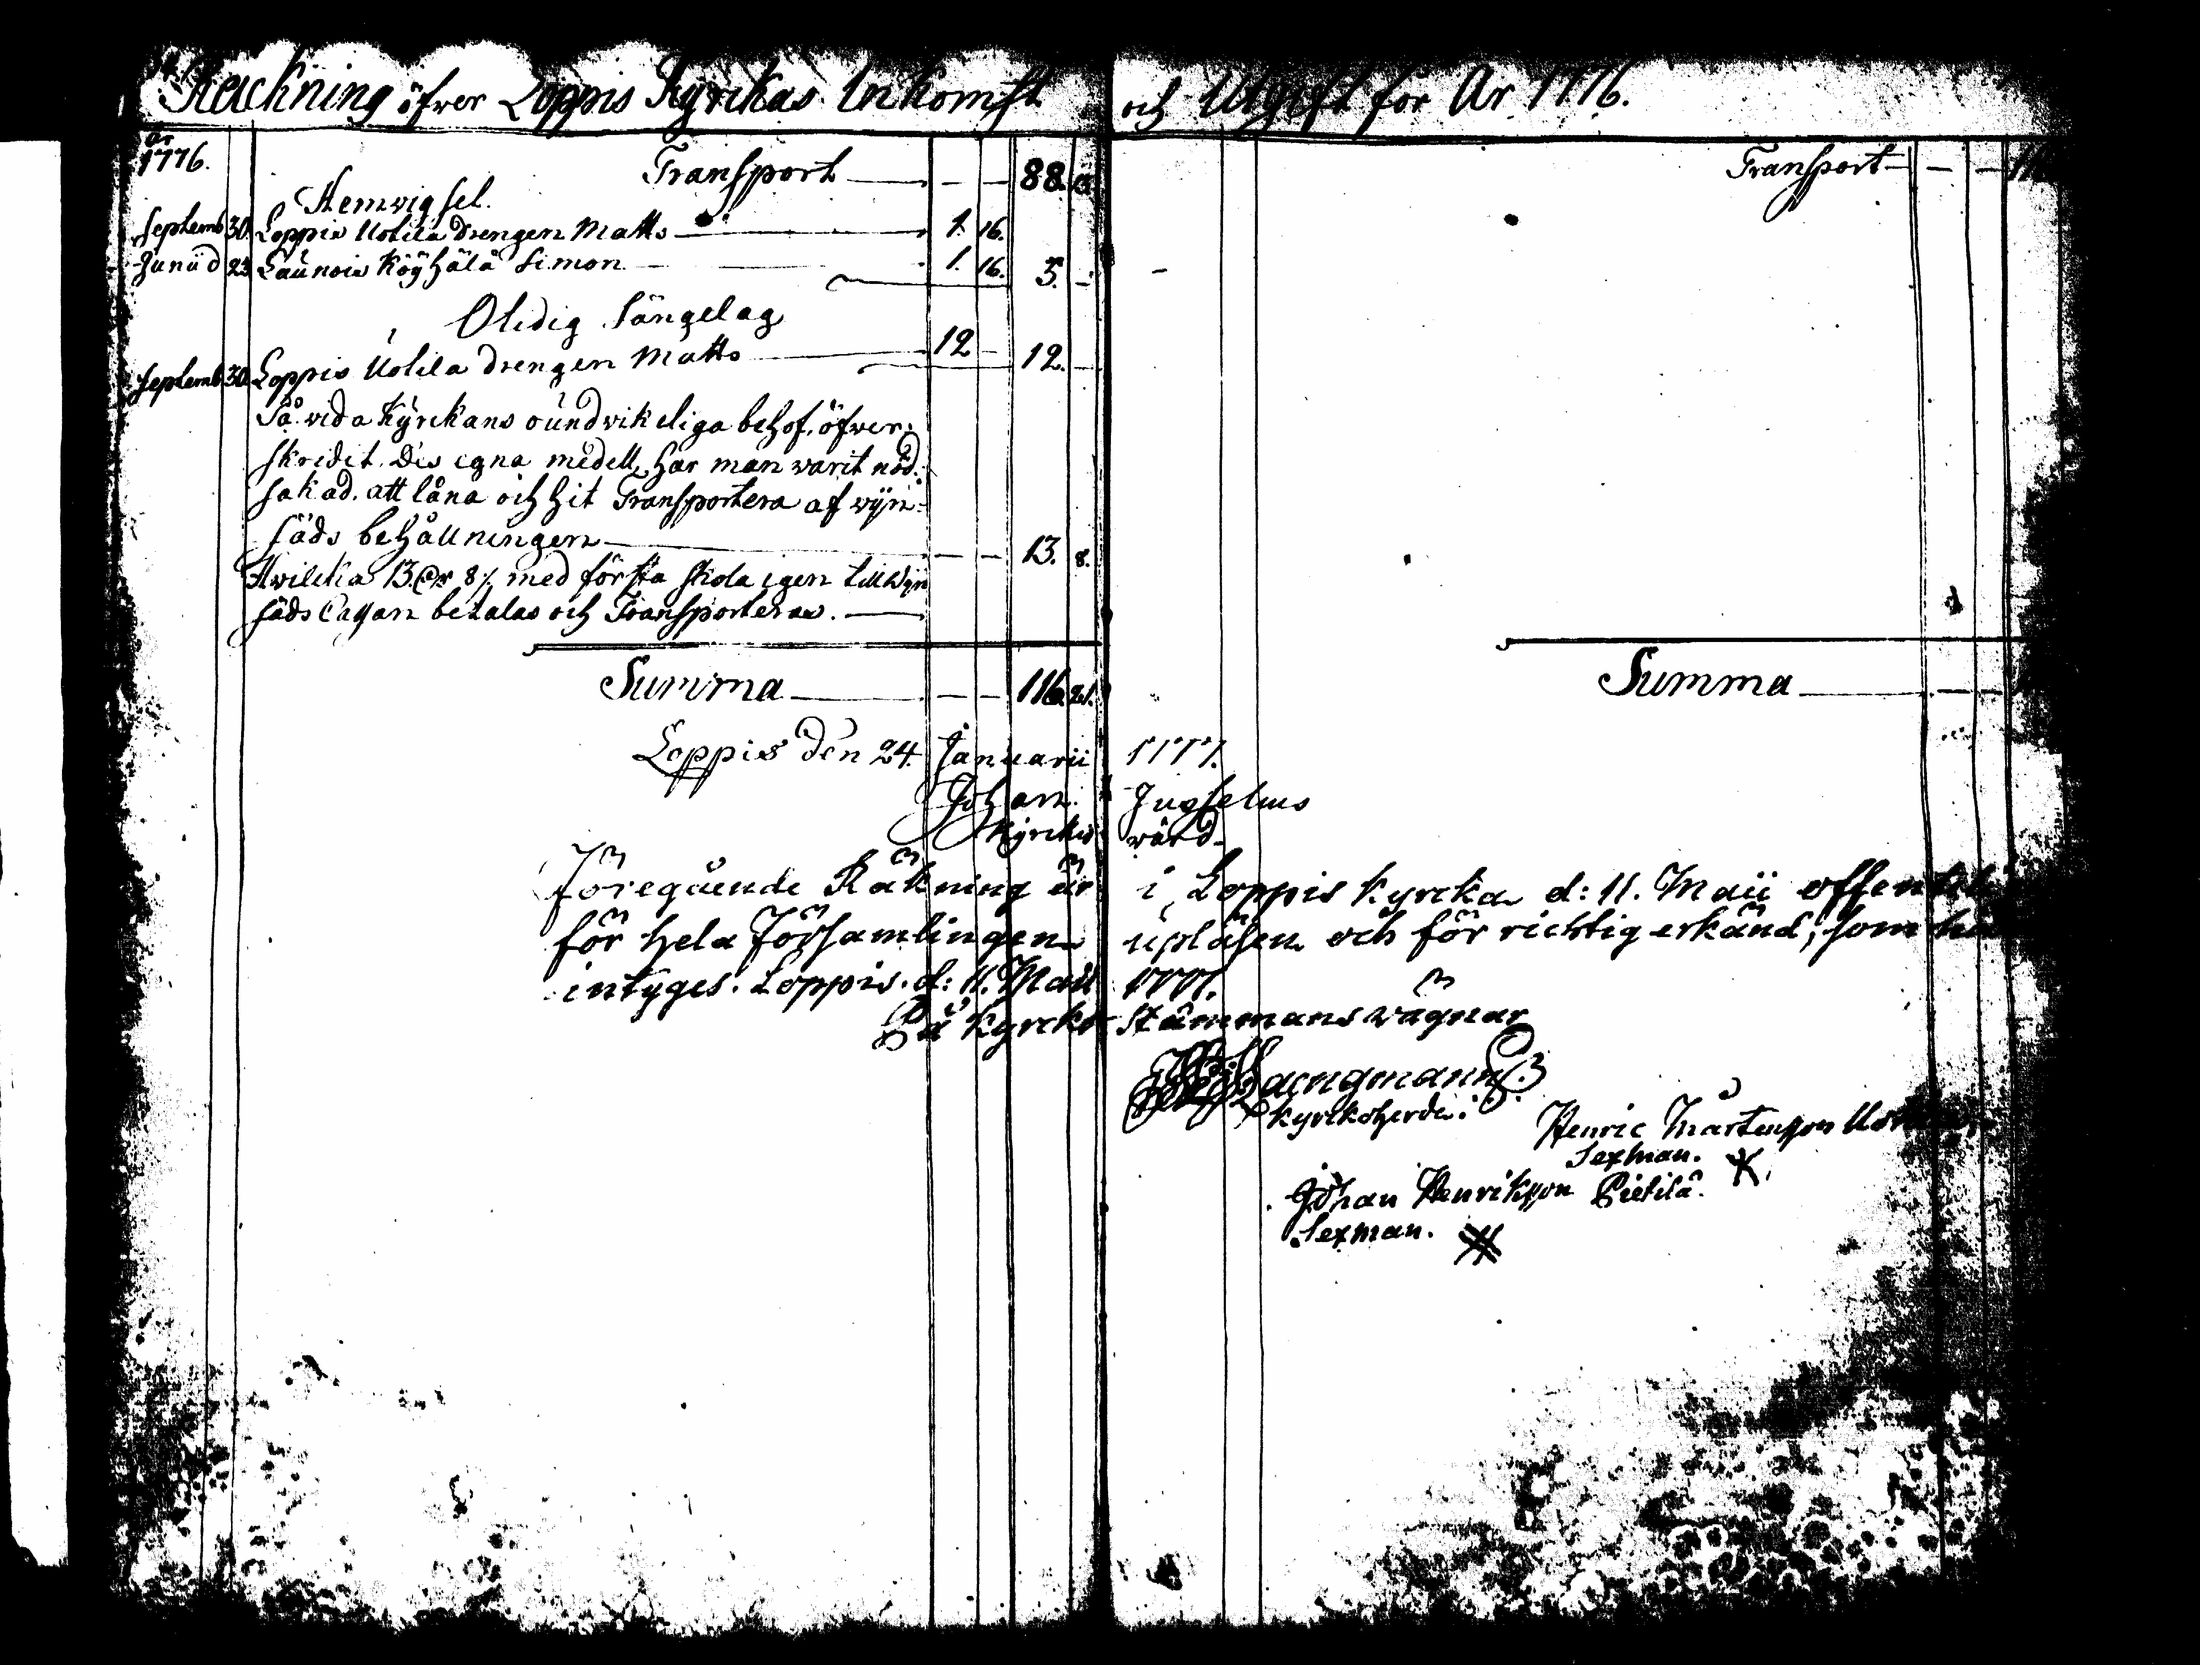 Räckning öfwer Loppis Kyrckas Inkomst och Utgift för År 1776.
år
1776.
Transport — — — 88. 13.
Hemwigsel.
Septemb 30. Loppis Uotila drengen Matts — 1. 16.
Junii d 23 Launois Köyhälä Simon — 1. 16. 3. —
Olidig Sängelag
Septemb. 30. Loppis Uotila drengen Matts — 12 — 12. —
Så wida Kyrckans oundwikeliga behof, öfwer-
skridit Dis egna medell, har man warit nöd-
sakad, att låna och hit Transportera af wijn-
säds behållningen — — — 13. 8.
Hwilcka 13 8 med första skola igen till wijn
säds Cassan betalas och Transporteras. —
Summa — — — 116. 21.
Transport — — —
Summa — — —
Loppis den 24. Januarii 1777.
Johan
Kyrcko wärd
Föregående Räkning är i Loppis Kyrcka d: 11. Maii
för hela Församlingen upläsen och för richtig erkänd, som
intyges. Loppis. d: 11. Maii 1777.
På Kyrcko Stämmans wägnar
Kyrckoherde.
Henric Mårtensson
Sexman.
Johan Henriksson Pietilä.
Sexman.